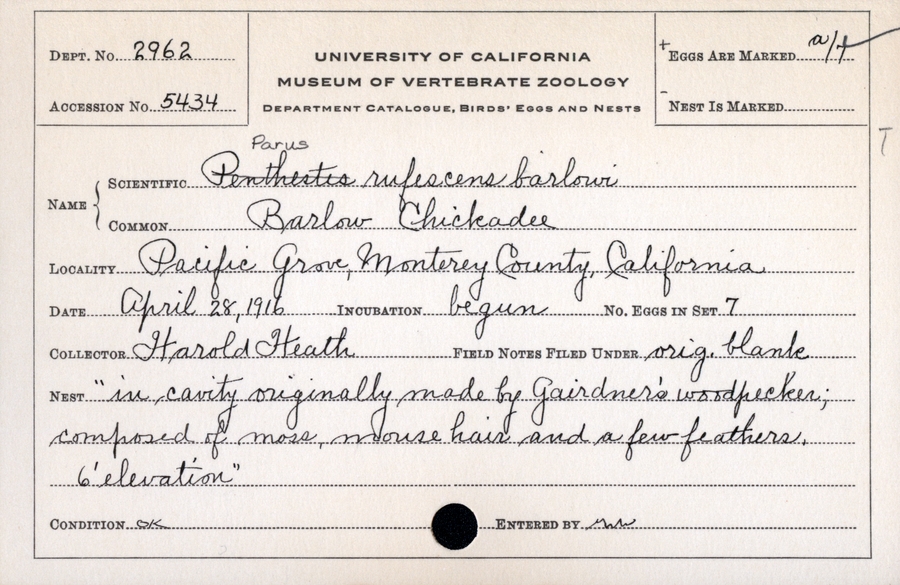 DEPT. No. 2962
ACCESSION No. 5434
UNIVERSITY OF CALIFORNIA
MUSEUM OF VERTEBRATE ZOOLOGY
DEPARTMENT CATALOGUE, BIRDS' EGGS AND NESTS
+ EGGS ARE MARKED a/7
- NEST IS MARKED
T
Parus
NAME { SCIENTIFIC Penthestes rufescens barlowi
COMMON Barlow Chickadee
LOCALITY Pacific Grove, Monterey County, California
DATE April 28, 1916 INCUBATION begun No. EGGS IN SET 7
COLLECTOR Harold Heath FIELD NOTES FILED UNDER orig. blank
NEST "in cavity originally made by Gairdner's woodpecker;
composed of moss, mouse hair and a few feathers.
6' elevation"
CONDITION OK ENTERED BY